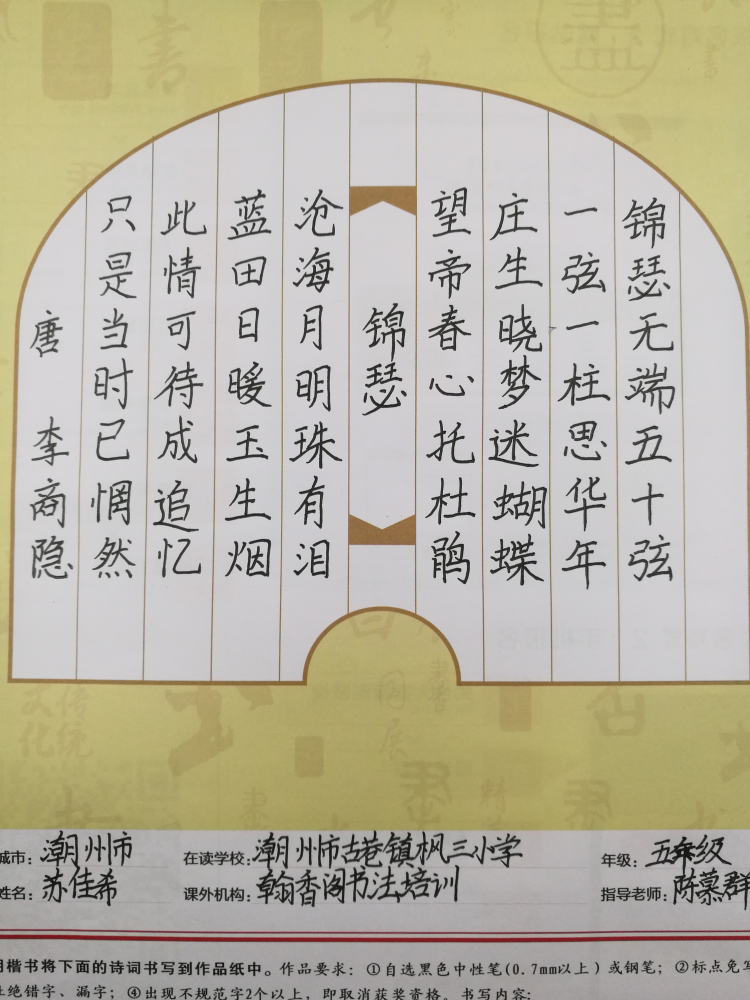 锦瑟无端五十弦
一弦一柱思华年
庄生晓梦迷蝴蝶
望帝春心托杜鹃
锦瑟
沧海月明珠有泪
蓝田日暖玉生烟
此情可待成追忆
只是当时已惘然
唐 李商隐
城市：潮州市 在读学校：潮州市古巷镇枫三小学 年级：五年级
姓名：苏佳希 课外机构：翰香阁书法培训 指导老师：陈慕群
用楷书将下面的诗词书写到作品纸中。作品要求：①自选黑色中性笔(0.7mm以上)或钢笔；②标点免写
杜绝错字、漏字；④出现不规范字2个以上，即取消获奖资格。书写内容: